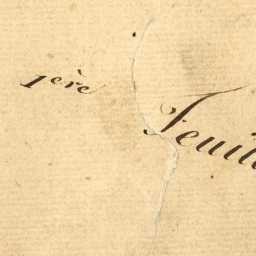 1ère Feuill